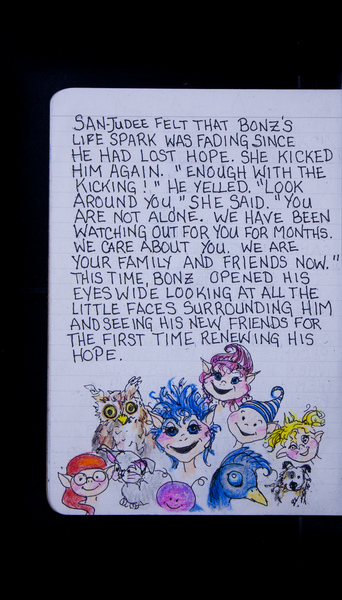 SAN-JUDEE FELT THAT BONZ'S
LIFE SPARK WAS FADING SINCE
HE HAD LOST HOPE. SHE KICKED
HIM AGAIN. "ENOUGH WITH THE
KICKING!" HE YELLED. "LOOK
AROUND YOU," SHE SAID. "YOU
ARE NOT ALONE. WE HAVE BEEN
WATCHING OUT FOR YOU FOR MONTHS.
WE CARE ABOUT YOU. WE ARE
YOUR FAMILY AND FRIENDS NOW."
THIS TIME, BONZ OPENED HIS
EYES WIDE LOOKING AT ALL THE
LITTLE FACES SURROUNDING HIM
AND SEEING HIS NEW FRIENDS FOR
THE FIRST TIME RENEWING HIS
HOPE.